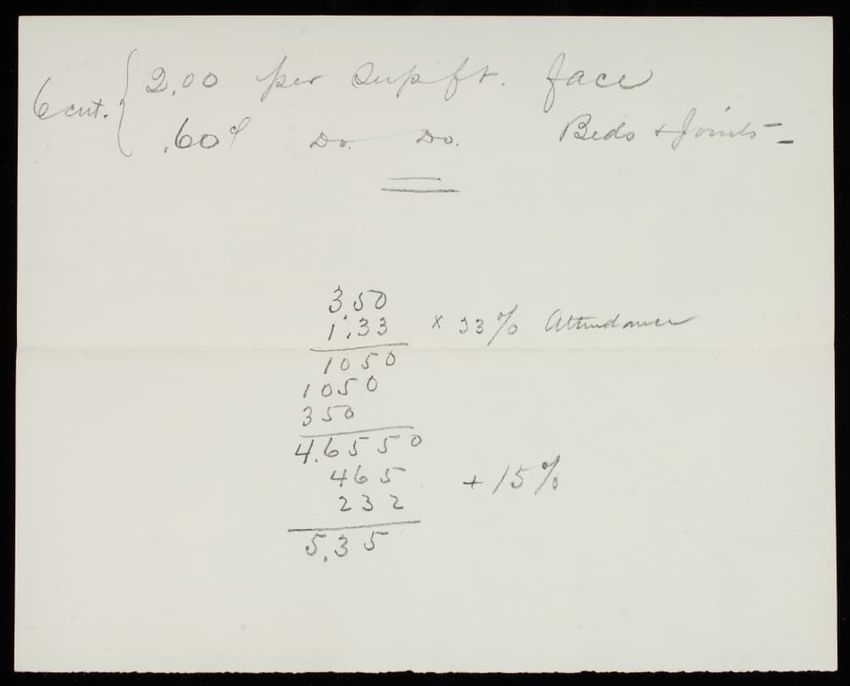 6 cut. { 2.00 per sup ft. face
.60¢ Do. Do. Beds + Joints -
350
1.33 x 33% Attendance
1050
1050
350
4.6550
465 + 15%
232
5.35